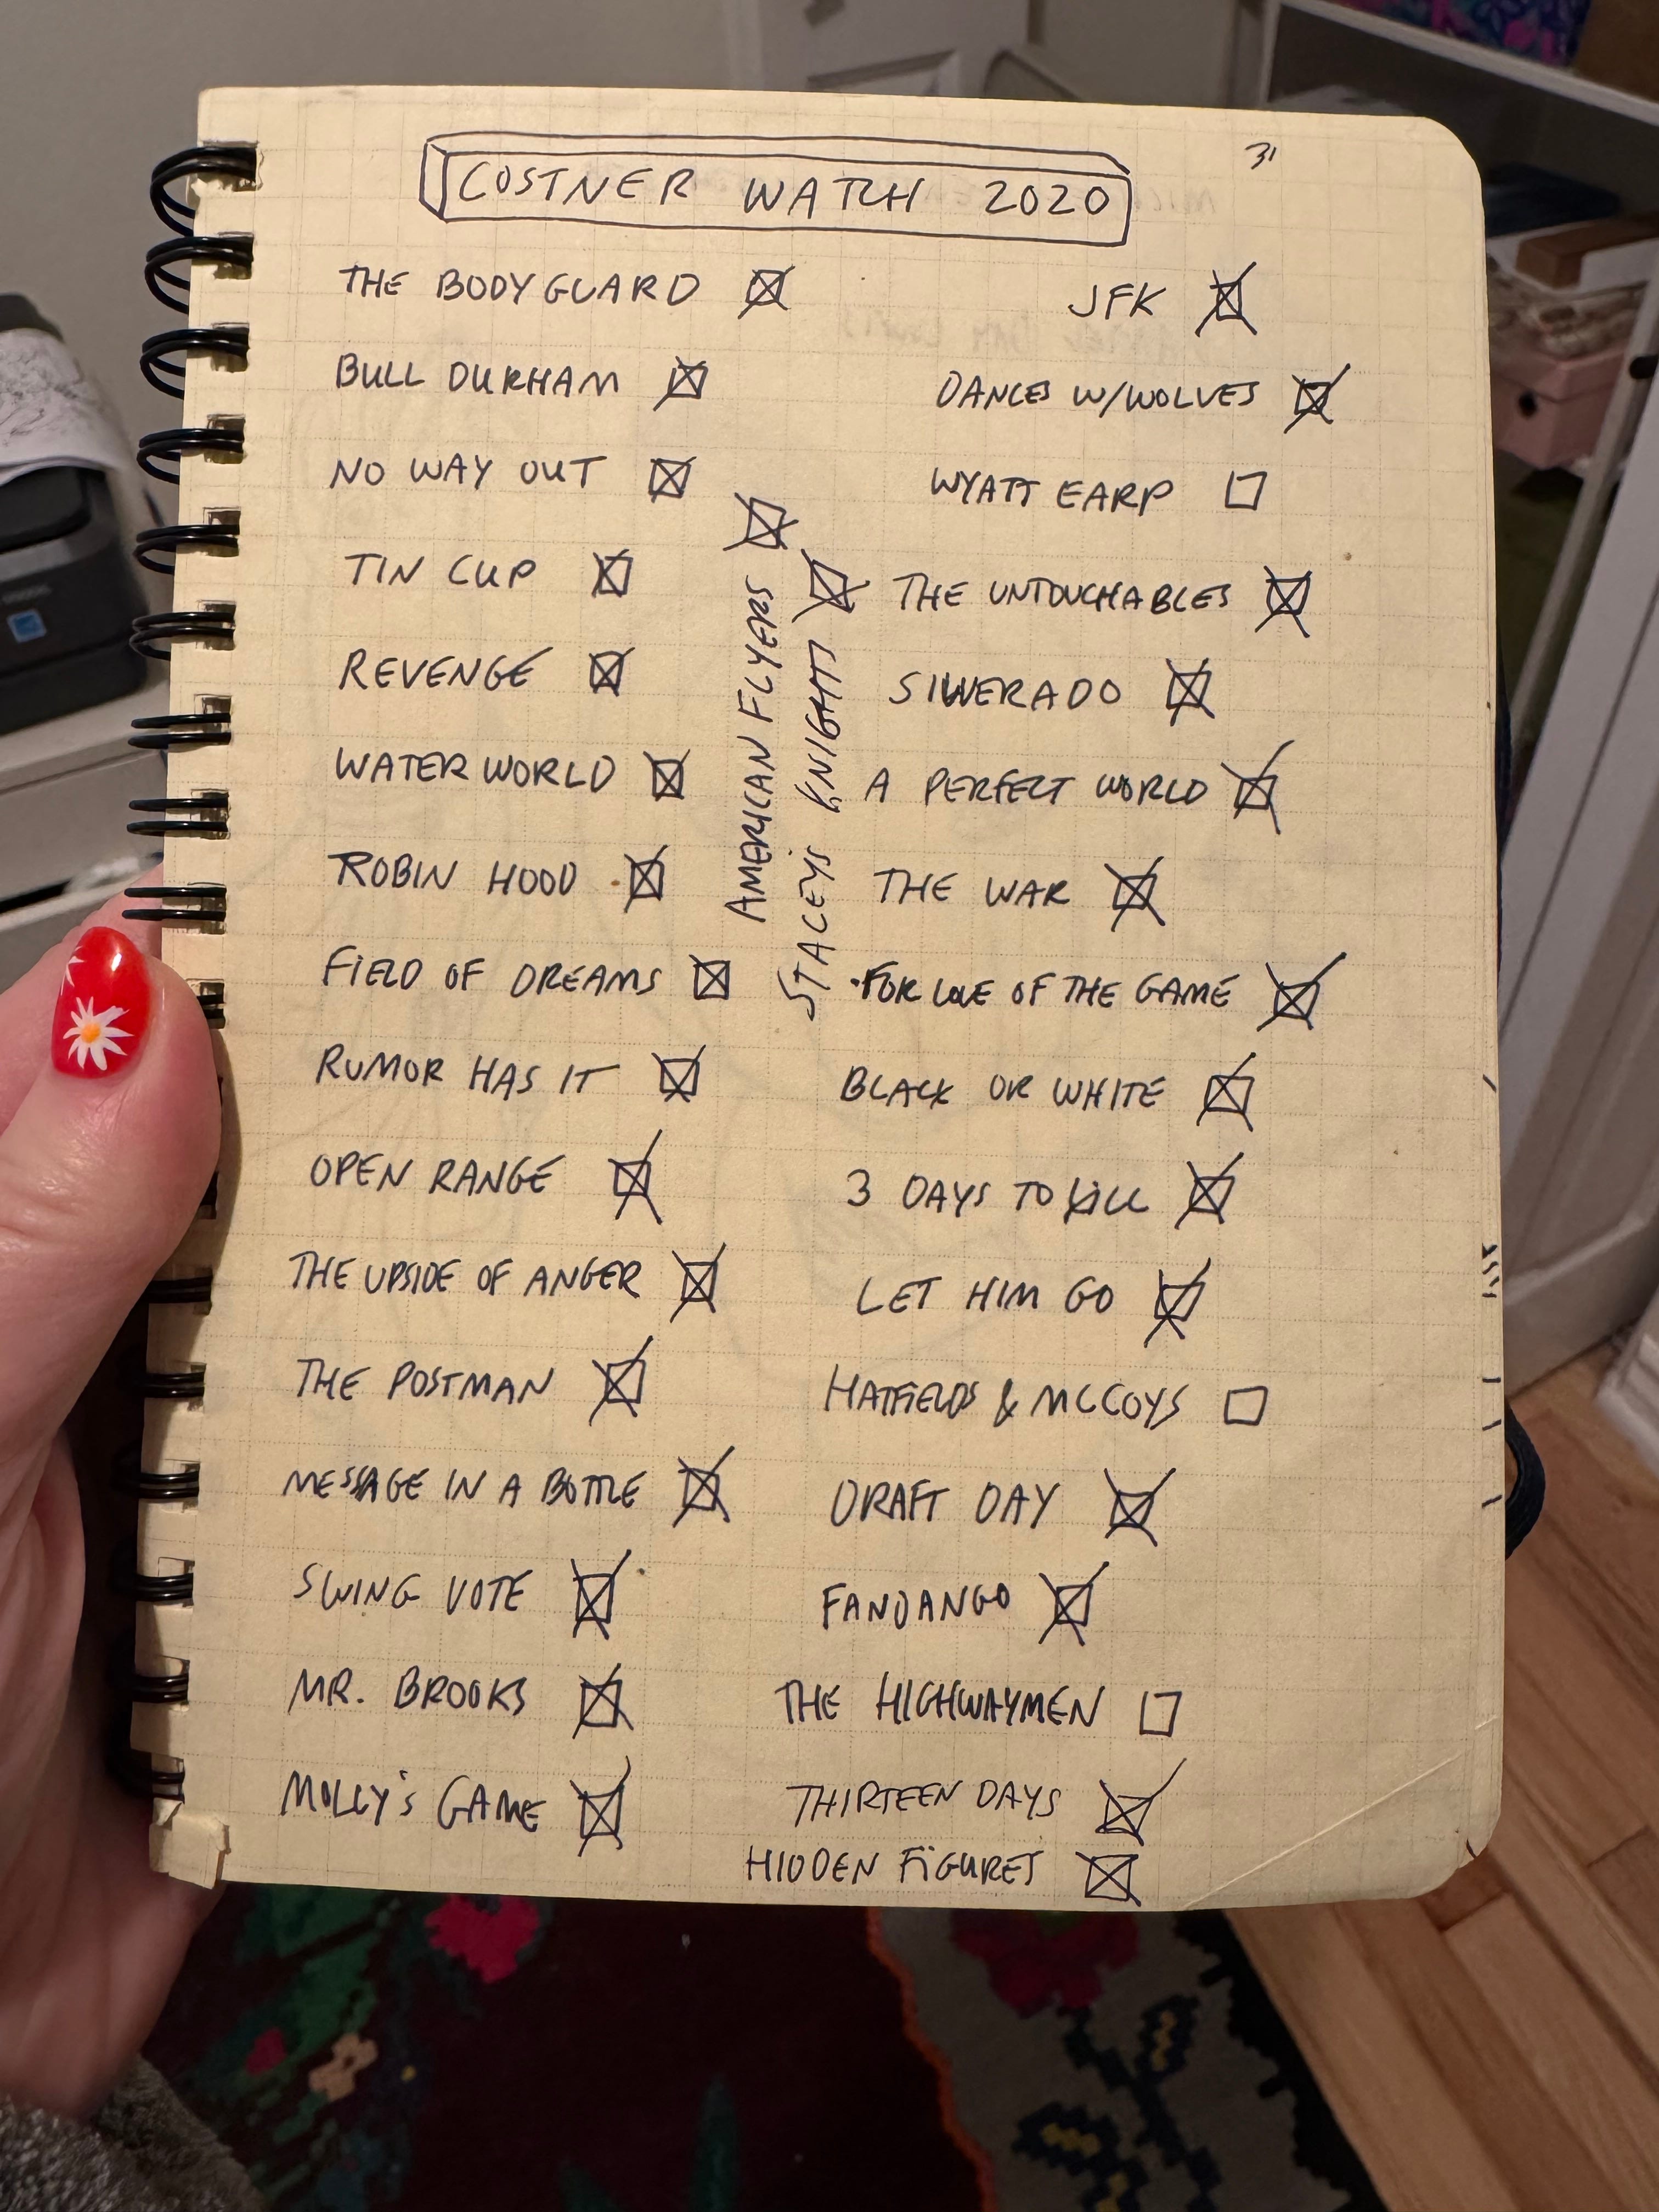 31
COSTNER WATCH 2020
THE BODYGUARD
BULL DURHAM
NO WAY OUT
TIN CUP
REVENGE
WATERWORLD
ROBIN HOOD
FIELD OF DREAMS
RUMOR HAS IT
OPEN RANGE
THE UPSIDE OF ANGER
THE POSTMAN
MESSAGE IN A BOTTLE
SWING VOTE
MR. BROOKS
MOLLY'S GAME
AMERICAN FLYERS
STACEYS KNIGHTS
JFK
DANCES W/WOLVES
WYATT EARP
THE UNTOUCHABLES
SILVERADO
A PERFECT WORLD
THE WAR
FOR LOVE OF THE GAME
BLACK OR WHITE
3 DAYS TO KILL
LET HIM GO
HATFIELDS & MCCOYS
DRAFT DAY
FANDANGO
THE HIGHWAYMEN
THIRTEEN DAYS
HIDDEN FIGURES